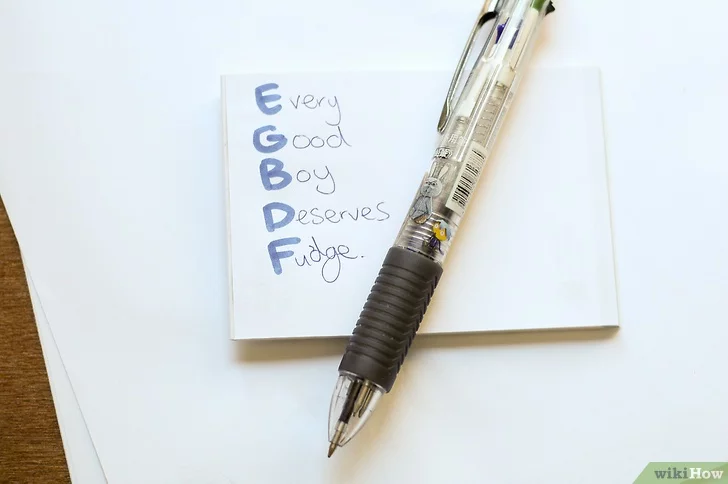 Every
Good
Boy
Deserves
Fudge.
wikiHow